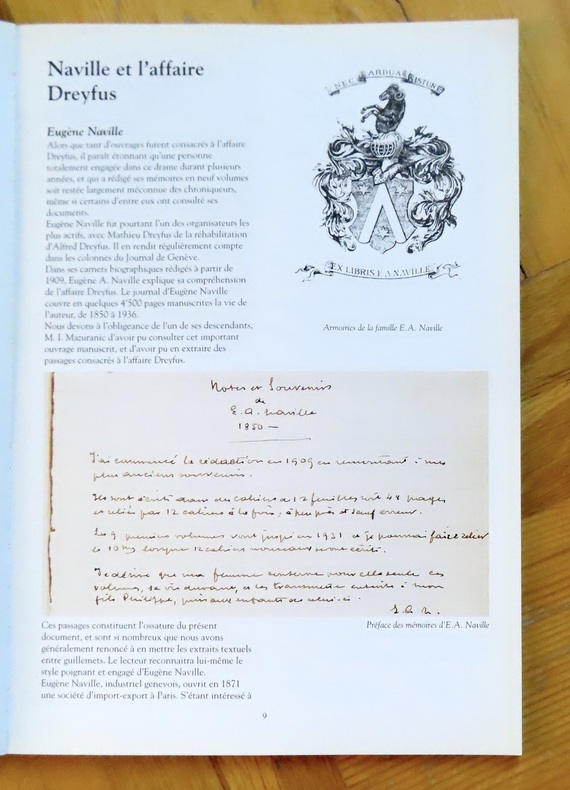 Naville et l'affaire
Dreyfus
Eugène Naville
Alors que tant d'ouvrages furent consacrés à l'affaire
Dreyfus, il paraît étonnant qu'une personne
totalement engagée dans ce drame durant plusieurs
années, et qui a rédigé ses mémoires en neuf volumes
soit restée largement méconnue des chroniqueurs,
même si certains d'entre eux ont consulté ses
documents.
Eugène Naville fut pourtant l'un des organisateurs les
plus actifs, avec Mathieu Dreyfus de la réhabilitation
d'Alfred Dreyfus. Il en rendit régulièrement compte
dans les colonnes du Journal de Genève.
Dans ses carnets biographiques rédigés à partir de
1909, Eugène A. Naville explique sa compréhension
de l'affaire Dreyfus. Le journal d'Eugène Naville
couvre en quelques 4'500 pages manuscrites la vie de
l'auteur, de 1850 à 1936.
Nous devons à l'obligeance de l'un de ses descendants,
M. I. Mazuranic d'avoir pu consulter cet important
ouvrage manuscrit, et d'avoir pu en extraire des
passages consacrés à l'affaire Dreyfus.
NEC ARDUA SISTUNT
EX LIBRIS E A NAVILLE
Armoiries de la famille E.A. Naville
Notes et Souvenirs
de
E. A. Naville
1850 —
J'ai commencé la rédaction en 1909 en remontant à mes
plus anciens souvenirs.
Ils sont écrits dans des cahiers de 12 feuilles soit 48 pages
et reliés par 12 cahiers à la fois, à peu près et sauf erreur.
Les 9 premiers volumes vont jusqu'en 1931 et je pourrai faire relier
le 10me lorsque 12 cahiers nouveaux seront écrits.
Je désire que ma femme conserve pour elle seule ces
volumes, sa vie durant, et les transmette ensuite à mon
fils Philippe, puis aux enfants de celui-ci.
E. A. N.
Préface des mémoires d'E.A. Naville
Ces passages constituent l'ossature du présent
document, et sont si nombreux que nous avons
généralement renoncé à en mettre les extraits textuels
entre guillemets. Le lecteur reconnaitra lui-même le
style poignant et engagé d'Eugène Naville.
Eugène Naville, industriel genevois, ouvrit en 1871
une société d'import-export à Paris. S'étant intéressé à
9